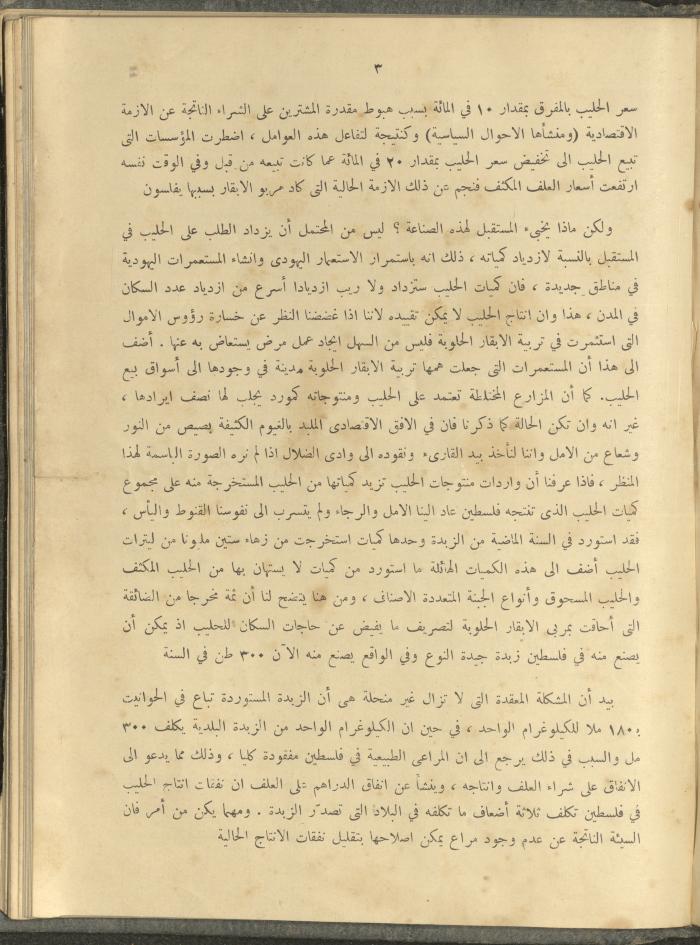 ٣
سعر الحليب بالمفرق بمقدار ١٠ في المائة بسبب هبوط مقدرة المشترين على الشراء الناتجة عن الازمة
الاقتصادية (ومنشأها الاحوال السياسية) وكنتيجة لتفاعل هذه العوامل ، اضطرت المؤسسات التى
تبيع الحليب الى تخفيض سعر الحليب بمقدار ٢٠ في المائة عما كانت تبيعه من قبل وفي الوقت نفسه
ارتفعت أسعار العلف المكثف فنجم عن ذلك الازمة الحالية التى كاد مربو الابقار بسببها يفلسون
ولكن ماذا يخبىء المستقبل لهذه الصناعة ؟ ليس من المحتمل أن يزداد الطلب على الحليب في
المستقبل بالنسبة لازدياد كمياته ، ذلك انه باستمرار الاستعمار اليهودى وانشاء المستعمرات اليهودية
في مناطق جديدة ، فان كميات الحليب ستزداد ولا ريب ازديادا أسرع من ازدياد عدد السكان
في المدن ، هذا وان انتاج الحليب لا يمكن تقييده لاننا اذا غضضنا النظر عن خسارة رؤوس الاموال
التى استثمرت في تربية الابقار الحلوبة فليس من السهل ايجاد عمل مرض يستعاض به عنها . أضف
الى هذا أن المستعمرات التى جعلت همها تربية الابقار الحلوبة مدينة في وجودها الى أسواق بيع
الحليب. كما أن المزارع المختلطة تعتمد على الحليب ومنتوجاته كمورد يجلب لها نصف ايرادها ،
غير انه وان تكن الحالة كما ذكرنا فان في الافق الاقتصادى الملبد بالغيوم الكثيفة بصيص من النور
وشعاع من الامل واننا لنأخذ بيد القارىء ونقوده الى وادى الضلال اذا لم نره الصورة الباسمة لهذا
المنظر ، فاذا عرفنا أن واردات منتوجات الحليب تزيد كمياتها من الحليب المستخرجة منه على مجموع
كميات الحليب الذى تنتجه فلسطين عاد الينا الامل والرجاء ولم يتسرب الى نفوسنا القنوط واليأس ،
فقد استورد في السنة الماضية من الزبدة وحدها كميات استخرجت من زهاء ستين مليونا من ليترات
الحليب أضف الى هذه الكميات الهائلة ما استورد من كميات لا يستهان بها من الحليب المكثف
والحليب المسحوق وأنواع الجبنة المتعددة الاصناف ، ومن هنا يتضح لنا أن ثمة مخرجا من الضائقة
التى أحاقت بمربى الابقار الحلوبة لتصريف ما يفيض عن حاجات السكان للحليب اذ يمكن أن
يصنع منه في فلسطين زبدة جيدة النوع وفي الواقع يصنع منه الآن ٣٠٠ طن في السنة
بيد أن المشكلة المعقدة التى لا تزال غير منحلة هى أن الزبدة المستوردة تباع في الحوانيت
بـ ١٨٠ ملا للكيلوغرام الواحد ، في حين ان الكيلوغرام الواحد من الزبدة البلدية يكلف ٣٠٠
مل والسبب في ذلك يرجع الى ان المراعى الطبيعية في فلسطين مفقودة كليا ، وذلك مما يدعو الى
الانفاق على شراء العلف وانتاجه ، وينشأ عن انفاق الدراهم على العلف ان نفقات انتاج الحليب
في فلسطين تكلف ثلاثة أضعاف ما تكلفه في البلاد التى تصدّر الزبدة . ومهما يكن من أمر فان
السيئة الناتجة عن عدم وجود مراع يمكن اصلاحها بتقليل نفقات الانتاج الحالية